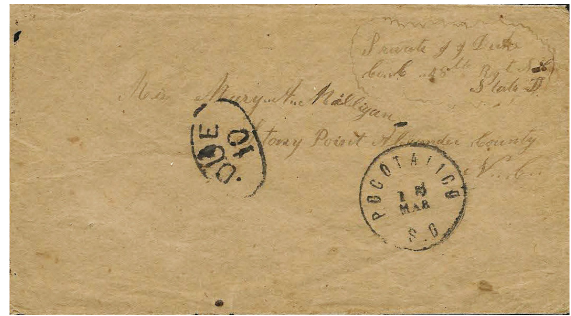 Private J J Du
Co K 48th Regt N.C.
State
Mary A Milligan,
Stony Point Alexander County
N.C.
DUE 10
POCOTALIGO
MAR
S.C